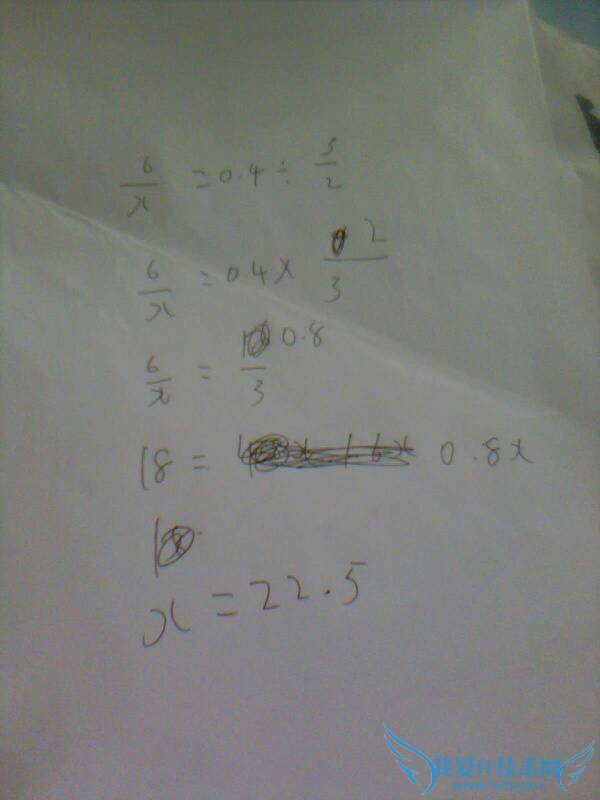 6/x = 0.4 ÷ 3/2
6/x = 0.4 × 2/3
6/x = 0.8/3
18 = 0.8x
x = 22.5
我爱IT技术网